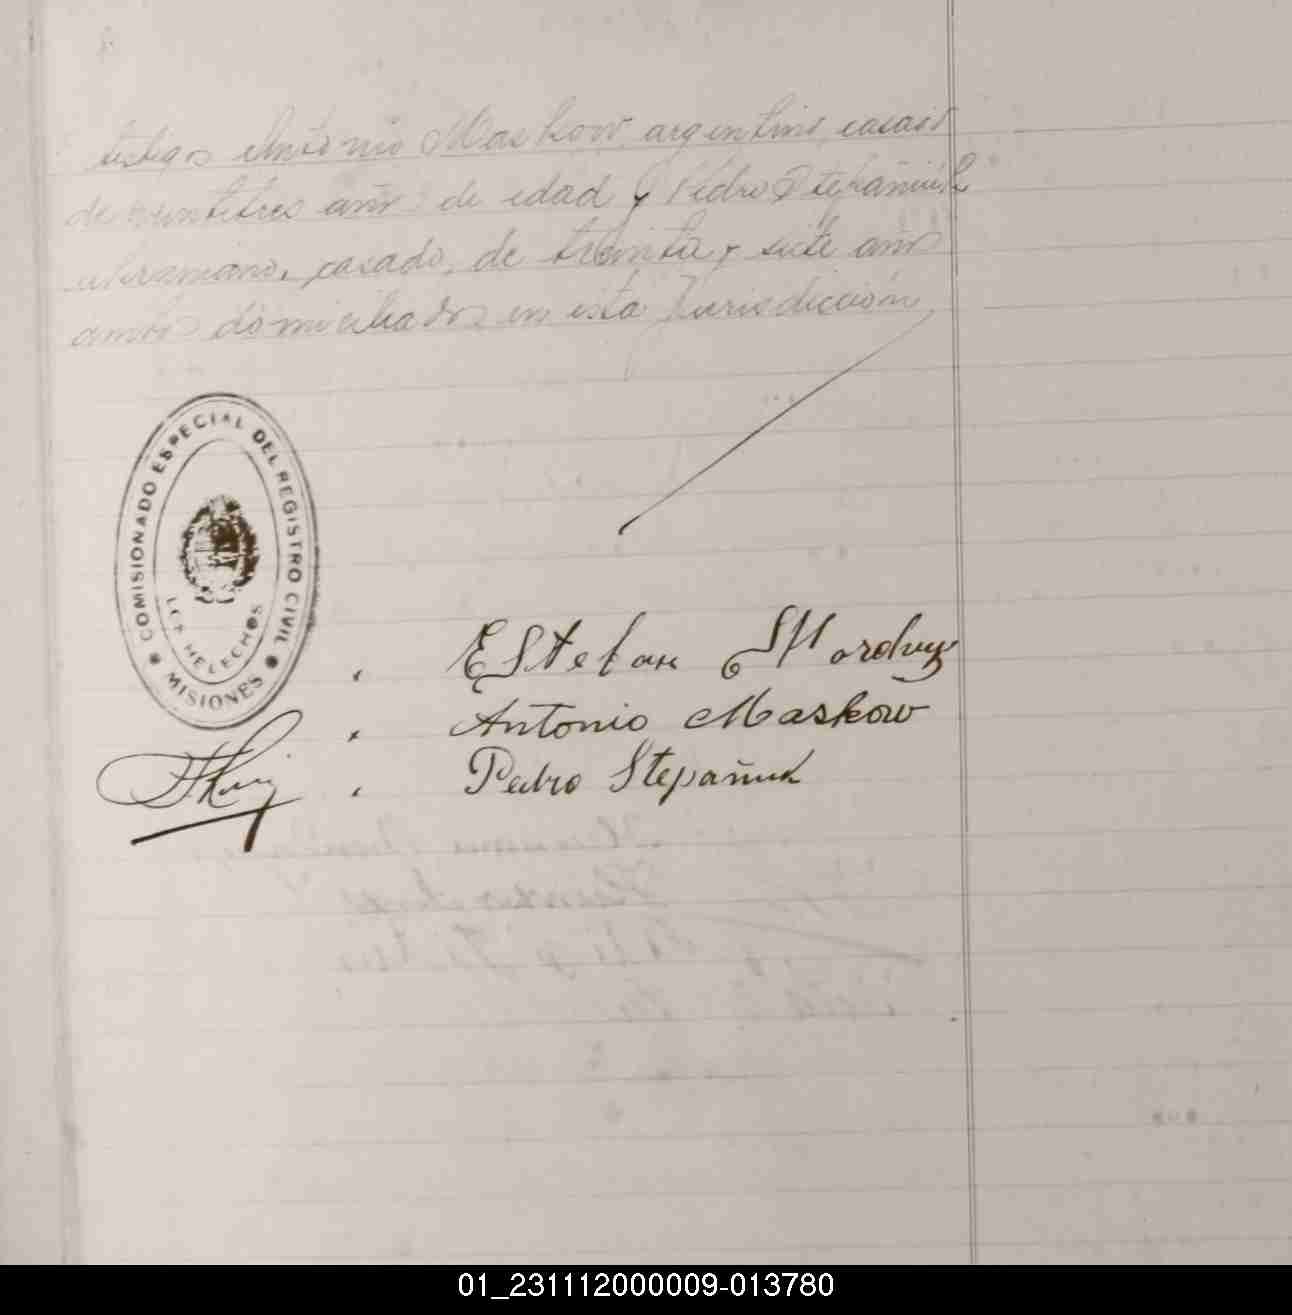 testigos Antonio Maskow, argentino, casado
de veintitres años de edad y Pedro Stepañiuk
ukraniano, casado, de treinta y siete años
ambos domiciliados en esta Jurisdicción
COMISIONADO ESPECIAL DEL REGISTRO CIVIL
LOS HELECHOS
MISIONES
Esteban
Antonio Maskow
Pedro Stepañiuk
01_231112000009-013780